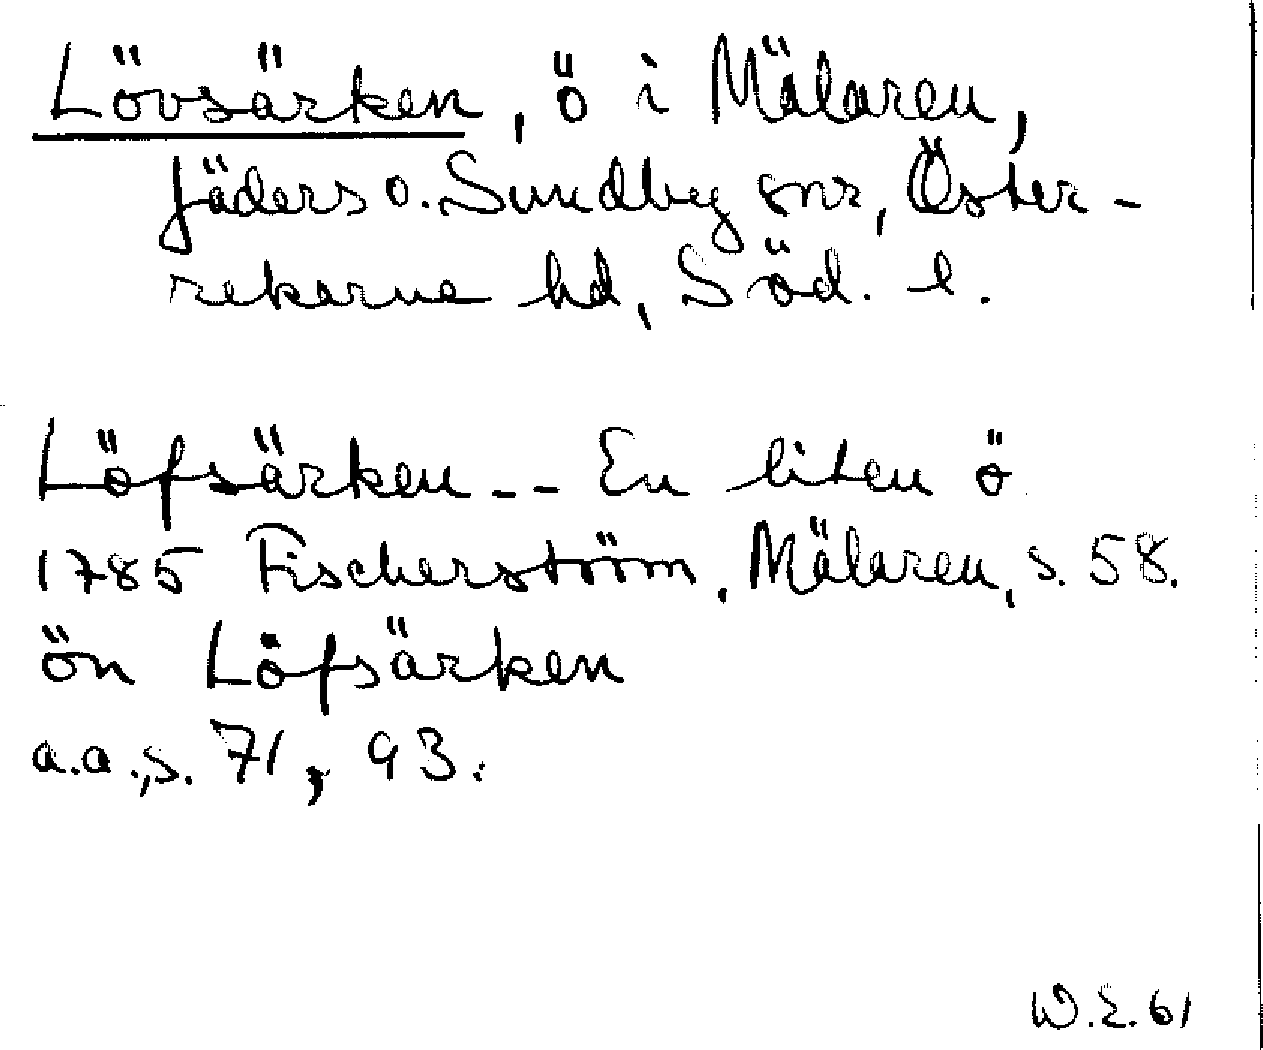 Lövsärken, ö i Mälaren,
Jäders o. Sundby snr, Öster-
rekarne hd, Söd. l.
Löfsärken -- En liten ö
1785 Fischerström, Mälaren, s. 58.
ön Löfsärken
a.a., s. 71, 93.
W.E. 61